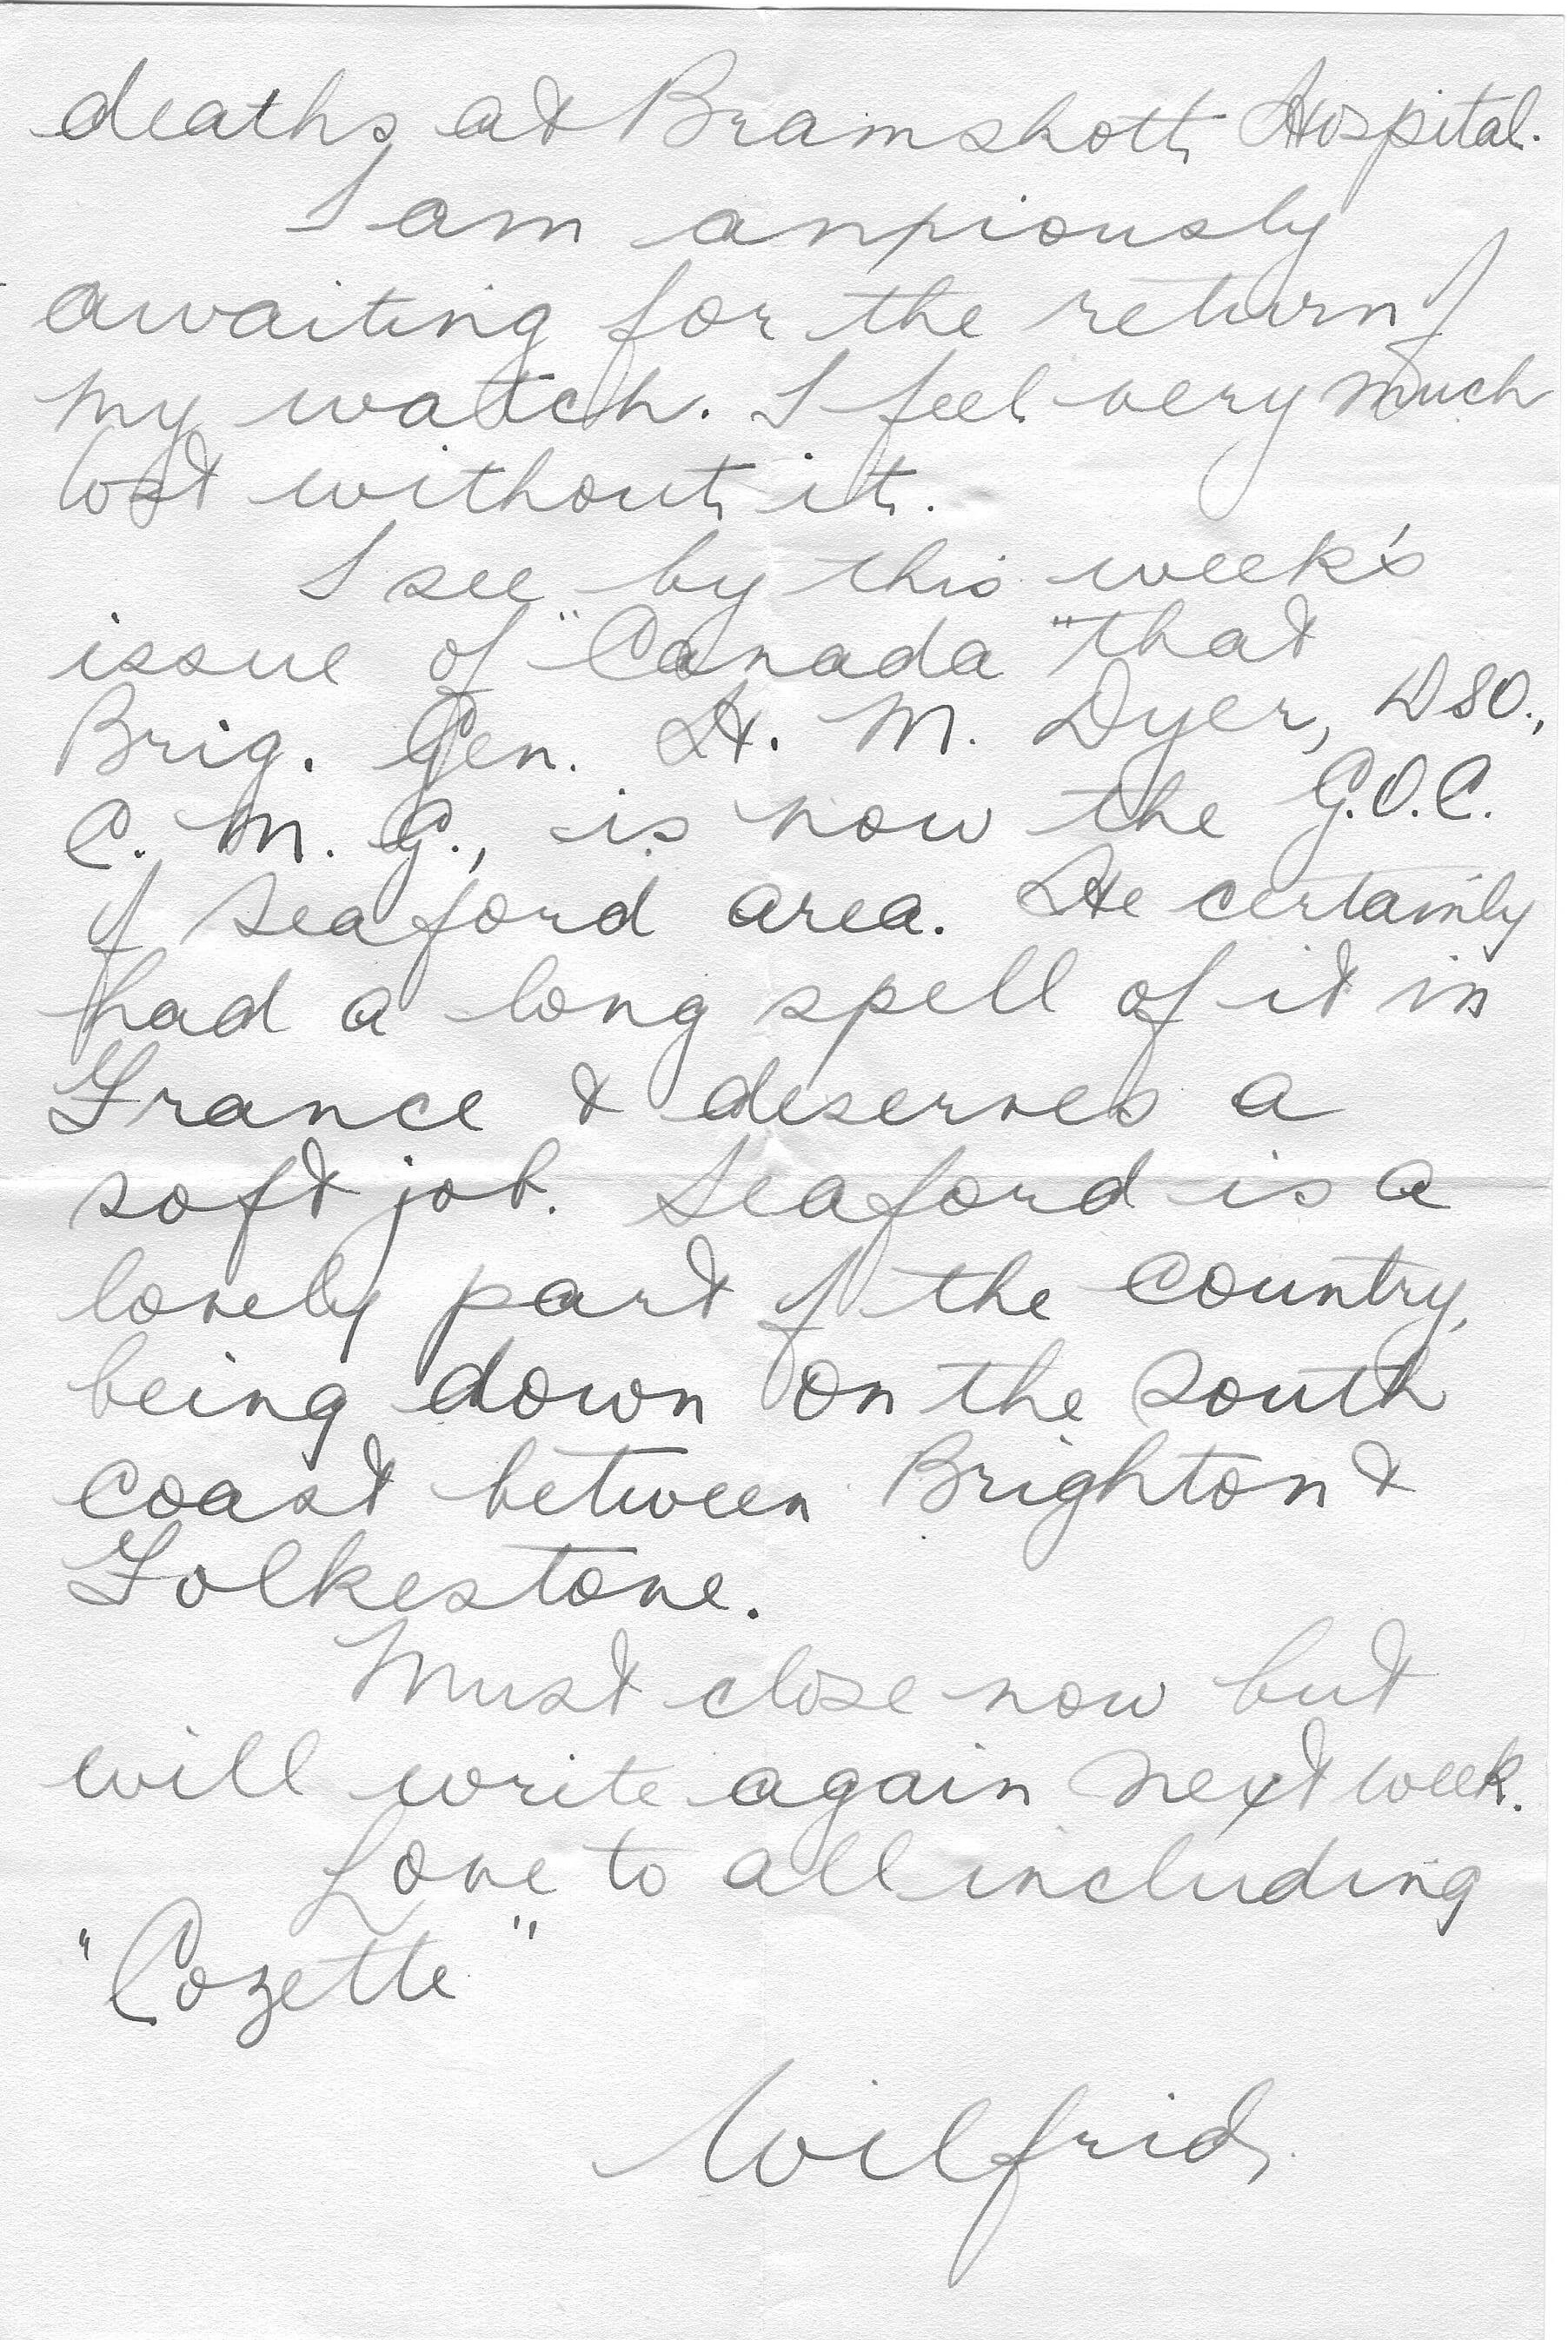 deaths at Bramshott Hospital.
I am anxiously
awaiting for the return of
my watch. I feel very much
lost without it.
I see by this week's
issue of "Canada" that
Brig. Gen. H. M. Dyer, DSO.,
C. M. G., is now the G.O.C.
of Seaford area. He certainly
had a long spell of it in
France & deserves a
soft job. Seaford is a
lovely part of the country,
being down on the south
coast between Brighton &
Folkestone.
Must close now but
will write again next week.
Love to all including
"Cozette"
Wilfrid.